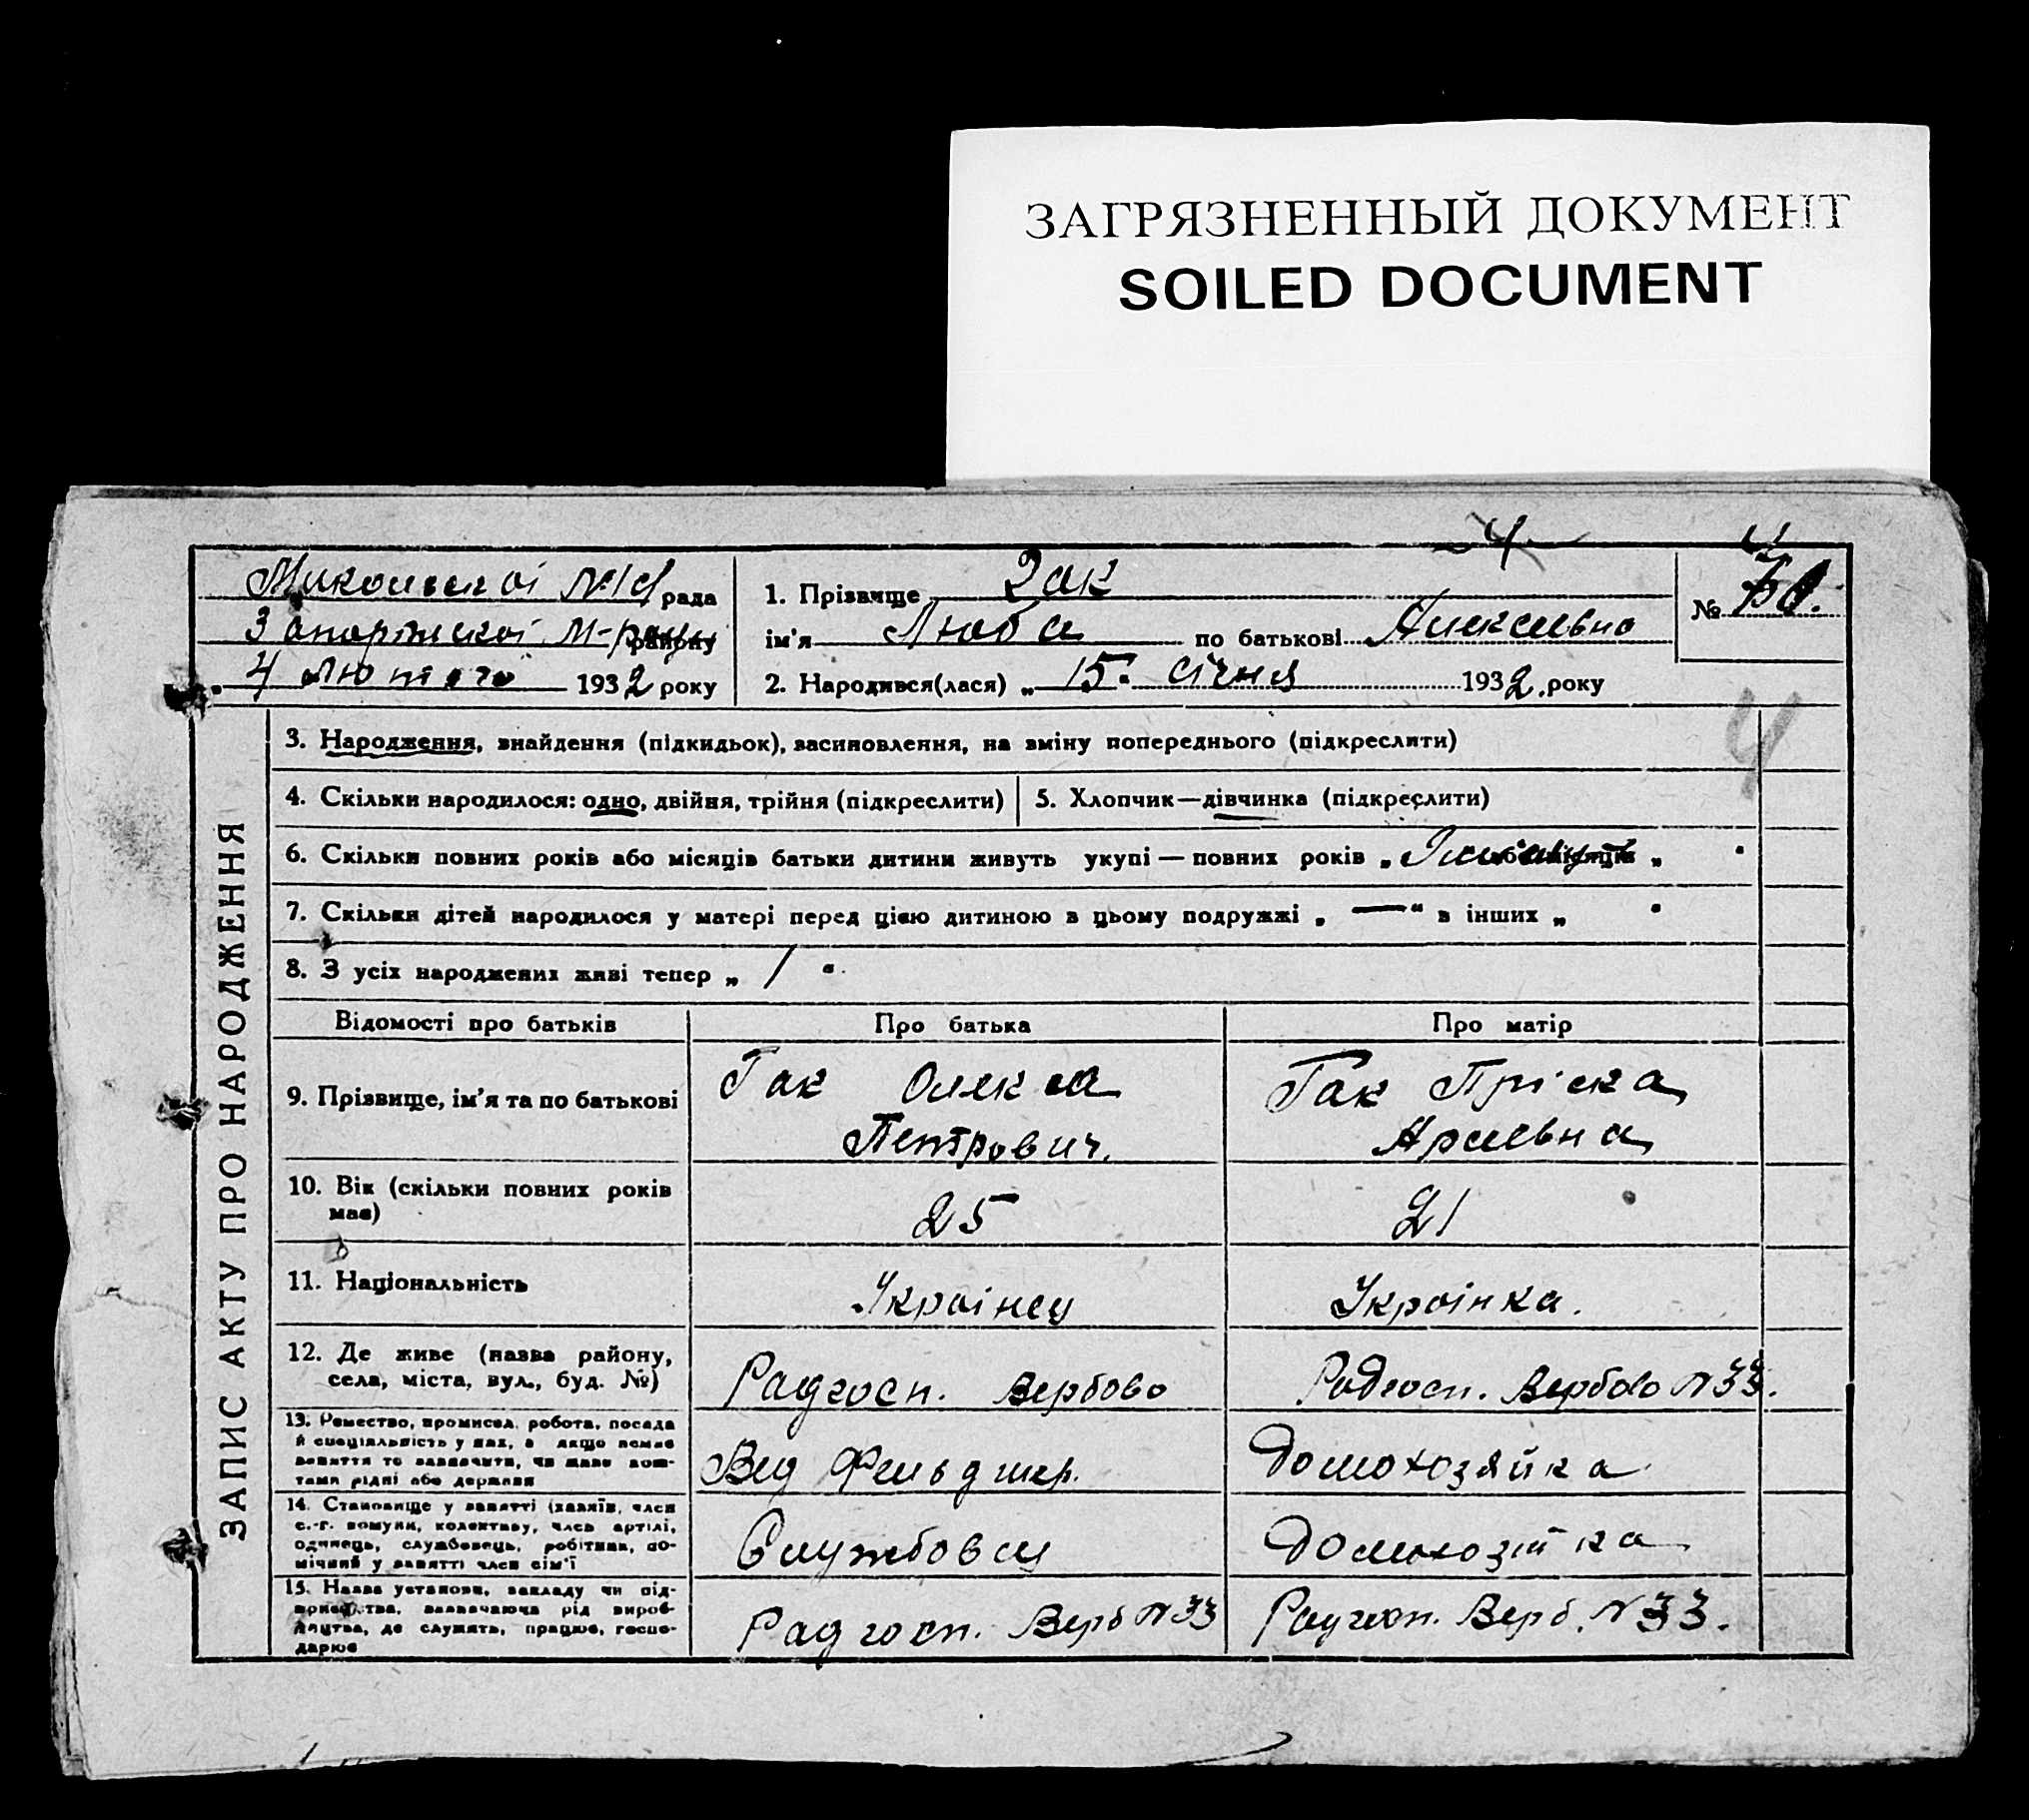 ЗАГРЯЗНЕННЫЙ ДОКУМЕНТ
SOILED DOCUMENT
4
рада
Запорізької М-району
4 лютого 1932 року
1. Прізвище Гак
ім'я Люба по батькові Алексеевна
2. Народився(лася) „ 15 " січня 1932 року
№
4
ЗАПИС АКТУ ПРО НАРОДЖЕННЯ
3. Народження, знайдення (підкидьок), засиновлення, на зміну попереднього (підкреслити)
4. Скільки народилося: одно, двійня, трійня (підкреслити)
5. Хлопчик—дівчинка (підкреслити)
6. Скільки повних років або місяців батьки дитини живуть укупі — повних років „
7. Скільки дітей народилося у матері перед цією дитиною в цьому подружжі „ — " в інших „ "
8. З усіх народжених живі тепер „ 1 "
Відомості про батьків Про батька Про матір
9. Прізвище, ім'я та по батькові
Гак Олекса
Петрович.
Гак Пріска
10. Вік (скільки повних років
має)
25 21
11. Національність Українец Українка.
12. Де живе (назва району,
села, міста, вул., буд. №)
Радгосп. Вербово Радгосп. Вербово №33.
13. Ремество, промисел, робота, посада
й спеціяльність у них, а якщо немає
заняття то зазначити, чи живе кош-
тами рідні або держави
Вед Фельдшер. Домохозяйка
14. Становище у занятті (хазяїн, член
с.-г. комуни, колективу, член артілі,
одинець, службовець, робітник, по-
мічний у занятті член сім'ї
Службовец Домохозяйка
15. Назва установи, закладу чи під-
приємства, зазначаюча рід вироб-
ництва, де служить, працює, госпо-
дарює
Радгосп. Верб №33 Радгосп. Верб. №33.